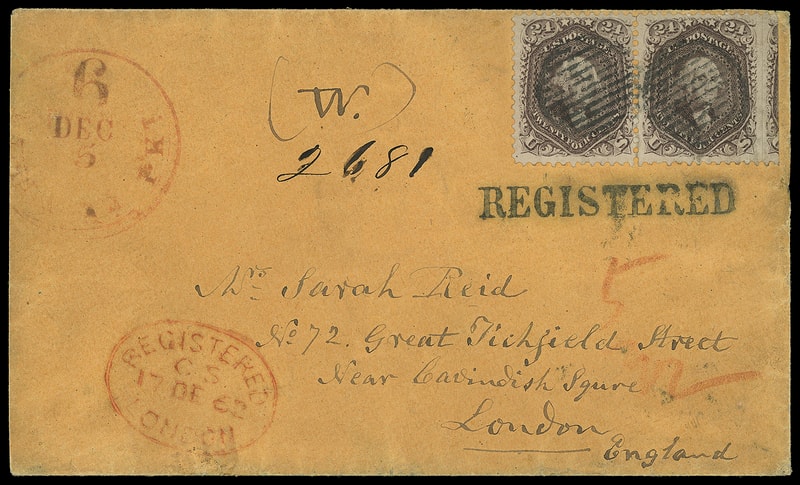 6
DEC
5
PKT
24 24
U.S. POSTAGE
TWENTY FOUR CENTS
U S
24 24
U.S. POSTAGE
TWENTY FOUR CENTS
U S
(W.)
2681
REGISTERED
Mrs Sarah Reid
No 72. Great Tichfield Street
Near Cavindish Squre
London
England
5
REGISTERED
C S
17 DE 62
LONDON